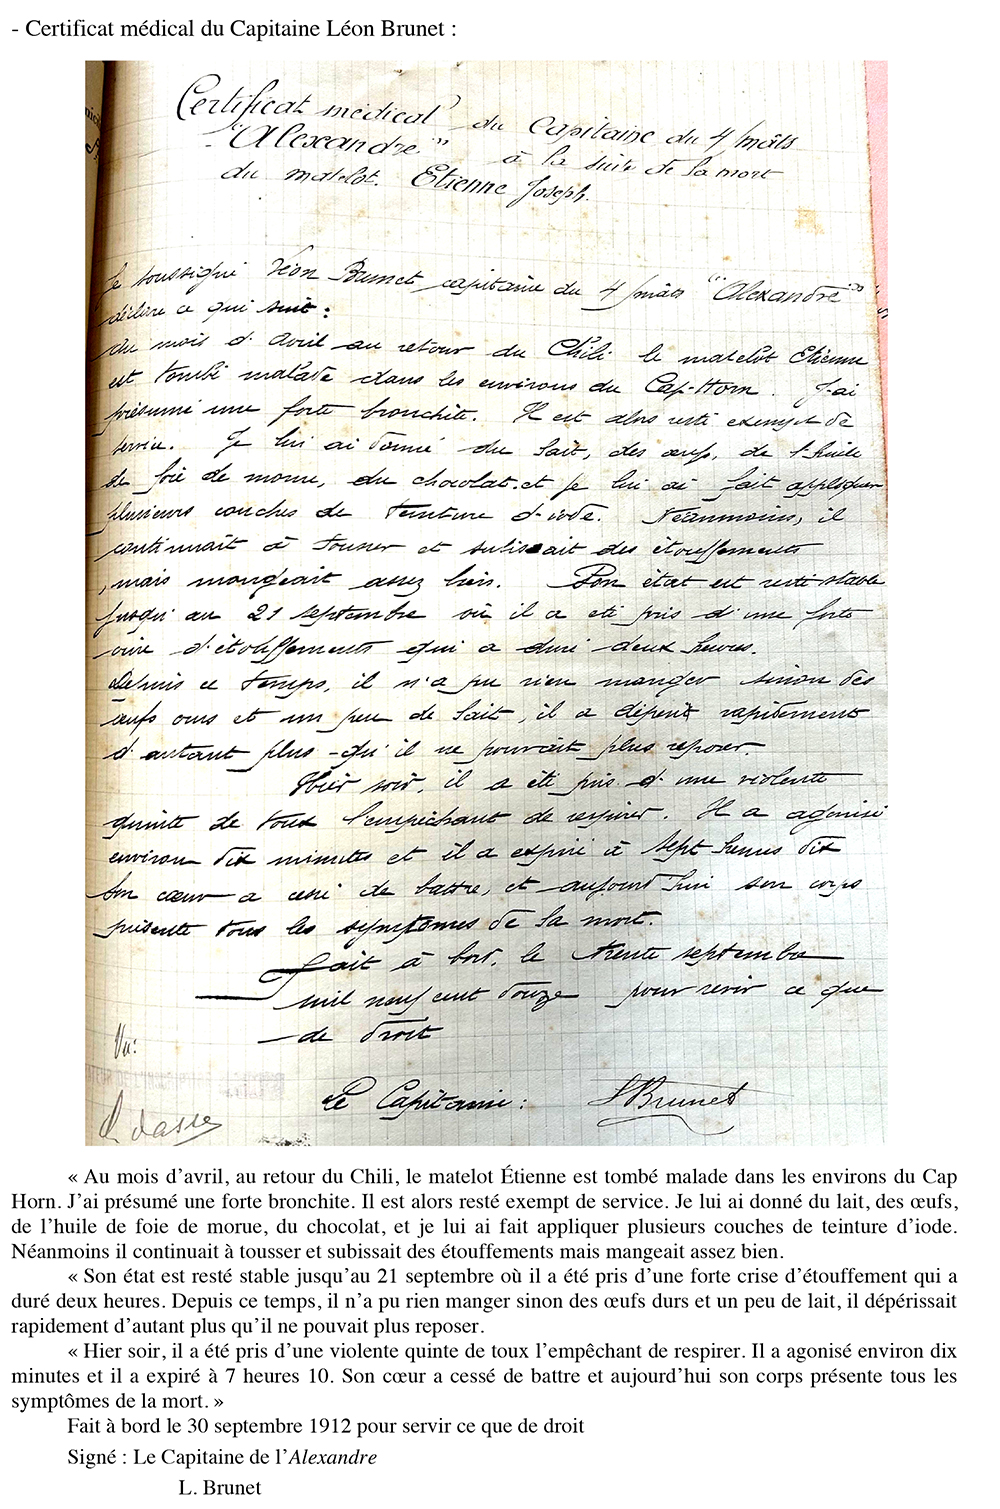 - Certificat médical du Capitaine Léon Brunet :
Certificat médical du Capitaine du 4/mâts
"Alexandre" à la suite de la mort
du matelot. Etienne Joseph.
Je soussigné Léon Brunet, capitaine du 4/mâts "Alexandre"
déclare ce qui suit :
Au mois d'Avril au retour du Chili le matelot Etienne
est tombé malade dans les environs du Cap-Horn. J'ai
présumé une forte bronchite. Il est alors resté exempt de
service. Je lui ai donné du lait, des œufs, de l'huile
de foie de morue, du chocolat, et je lui ai fait appliquer
plusieurs couches de teinture d'iode. Néanmoins, il
continuait à tousser et subissait des étouffements
, mais mangeait assez bien. Son état est resté stable
jusqu'au 21 septembre où il a été pris d'une forte
crise d'étouffements qui a duré deux heures.
Depuis ce temps, il n'a pu rien manger sinon des
œufs et un peu de lait, il a dépéri rapidement
d'autant plus qu'il ne pouvait plus reposer.
Hier soir, il a été pris d'une violente
quinte de toux l'empêchant de respirer. Il a agonisé
environ dix minutes et il a expiré à sept heures dix
Son cœur a cessé de battre, et aujourd'hui son corps
présente tous les symptômes de la mort.
Fait à bord, le trente septembre
mil neuf cent douze pour servir ce que
de droit
Vu:
Le Capitaine : LBrunet
« Au mois d'avril, au retour du Chili, le matelot Étienne est tombé malade dans les environs du Cap
Horn. J'ai présumé une forte bronchite. Il est alors resté exempt de service. Je lui ai donné du lait, des œufs,
de l'huile de foie de morue, du chocolat, et je lui ai fait appliquer plusieurs couches de teinture d'iode.
Néanmoins il continuait à tousser et subissait des étouffements mais mangeait assez bien.
« Son état est resté stable jusqu'au 21 septembre où il a été pris d'une forte crise d'étouffement qui a
duré deux heures. Depuis ce temps, il n'a pu rien manger sinon des œufs durs et un peu de lait, il dépérissait
rapidement d'autant plus qu'il ne pouvait plus reposer.
« Hier soir, il a été pris d'une violente quinte de toux l'empêchant de respirer. Il a agonisé environ dix
minutes et il a expiré à 7 heures 10. Son cœur a cessé de battre et aujourd'hui son corps présente tous les
symptômes de la mort. »
Fait à bord le 30 septembre 1912 pour servir ce que de droit
Signé : Le Capitaine de l'Alexandre
L. Brunet